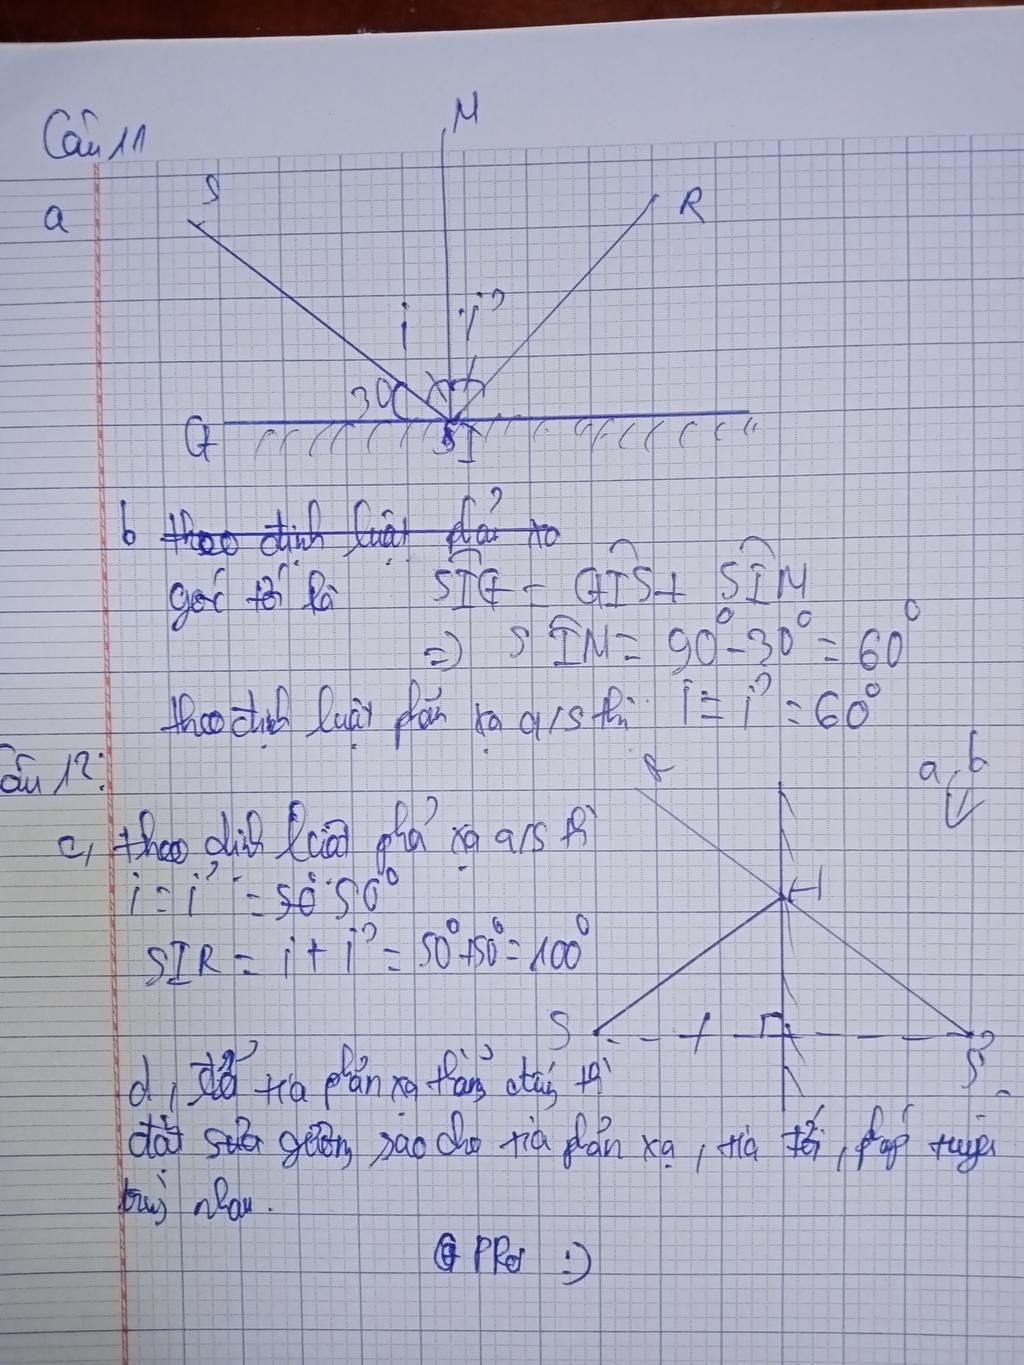 Câu 11
N
a
S
R
i
i'
30
G
I
b theo định luật phả xạ
góc tới là SIG = GIS + SIN
=> SIN = 90° - 30° = 60°
theo định luật phản xạ a/s thì i = i' = 60°
Câu 12:
R
a, b
c, theo định luật phả xạ a/s thì
i = i' = 50 50°
SIR = i + i' = 50° + 50° = 100°
I
S
S'
d, để tia phản xạ thẳng đứng thì
đặt sửa gương sao cho tia phản xạ, tia tới, pháp tuyến
trùng nhau.
PRO :)